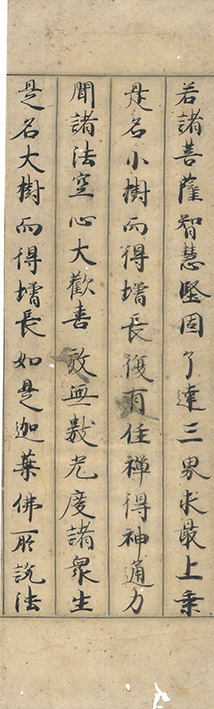 若諸菩薩智慧堅固了達三界求最上乗
是名小樹而得增長復有住禅得神通力
聞諸法空心大歡喜放無數光度諸衆生
是名大樹而得增長如是迦葉佛所說法